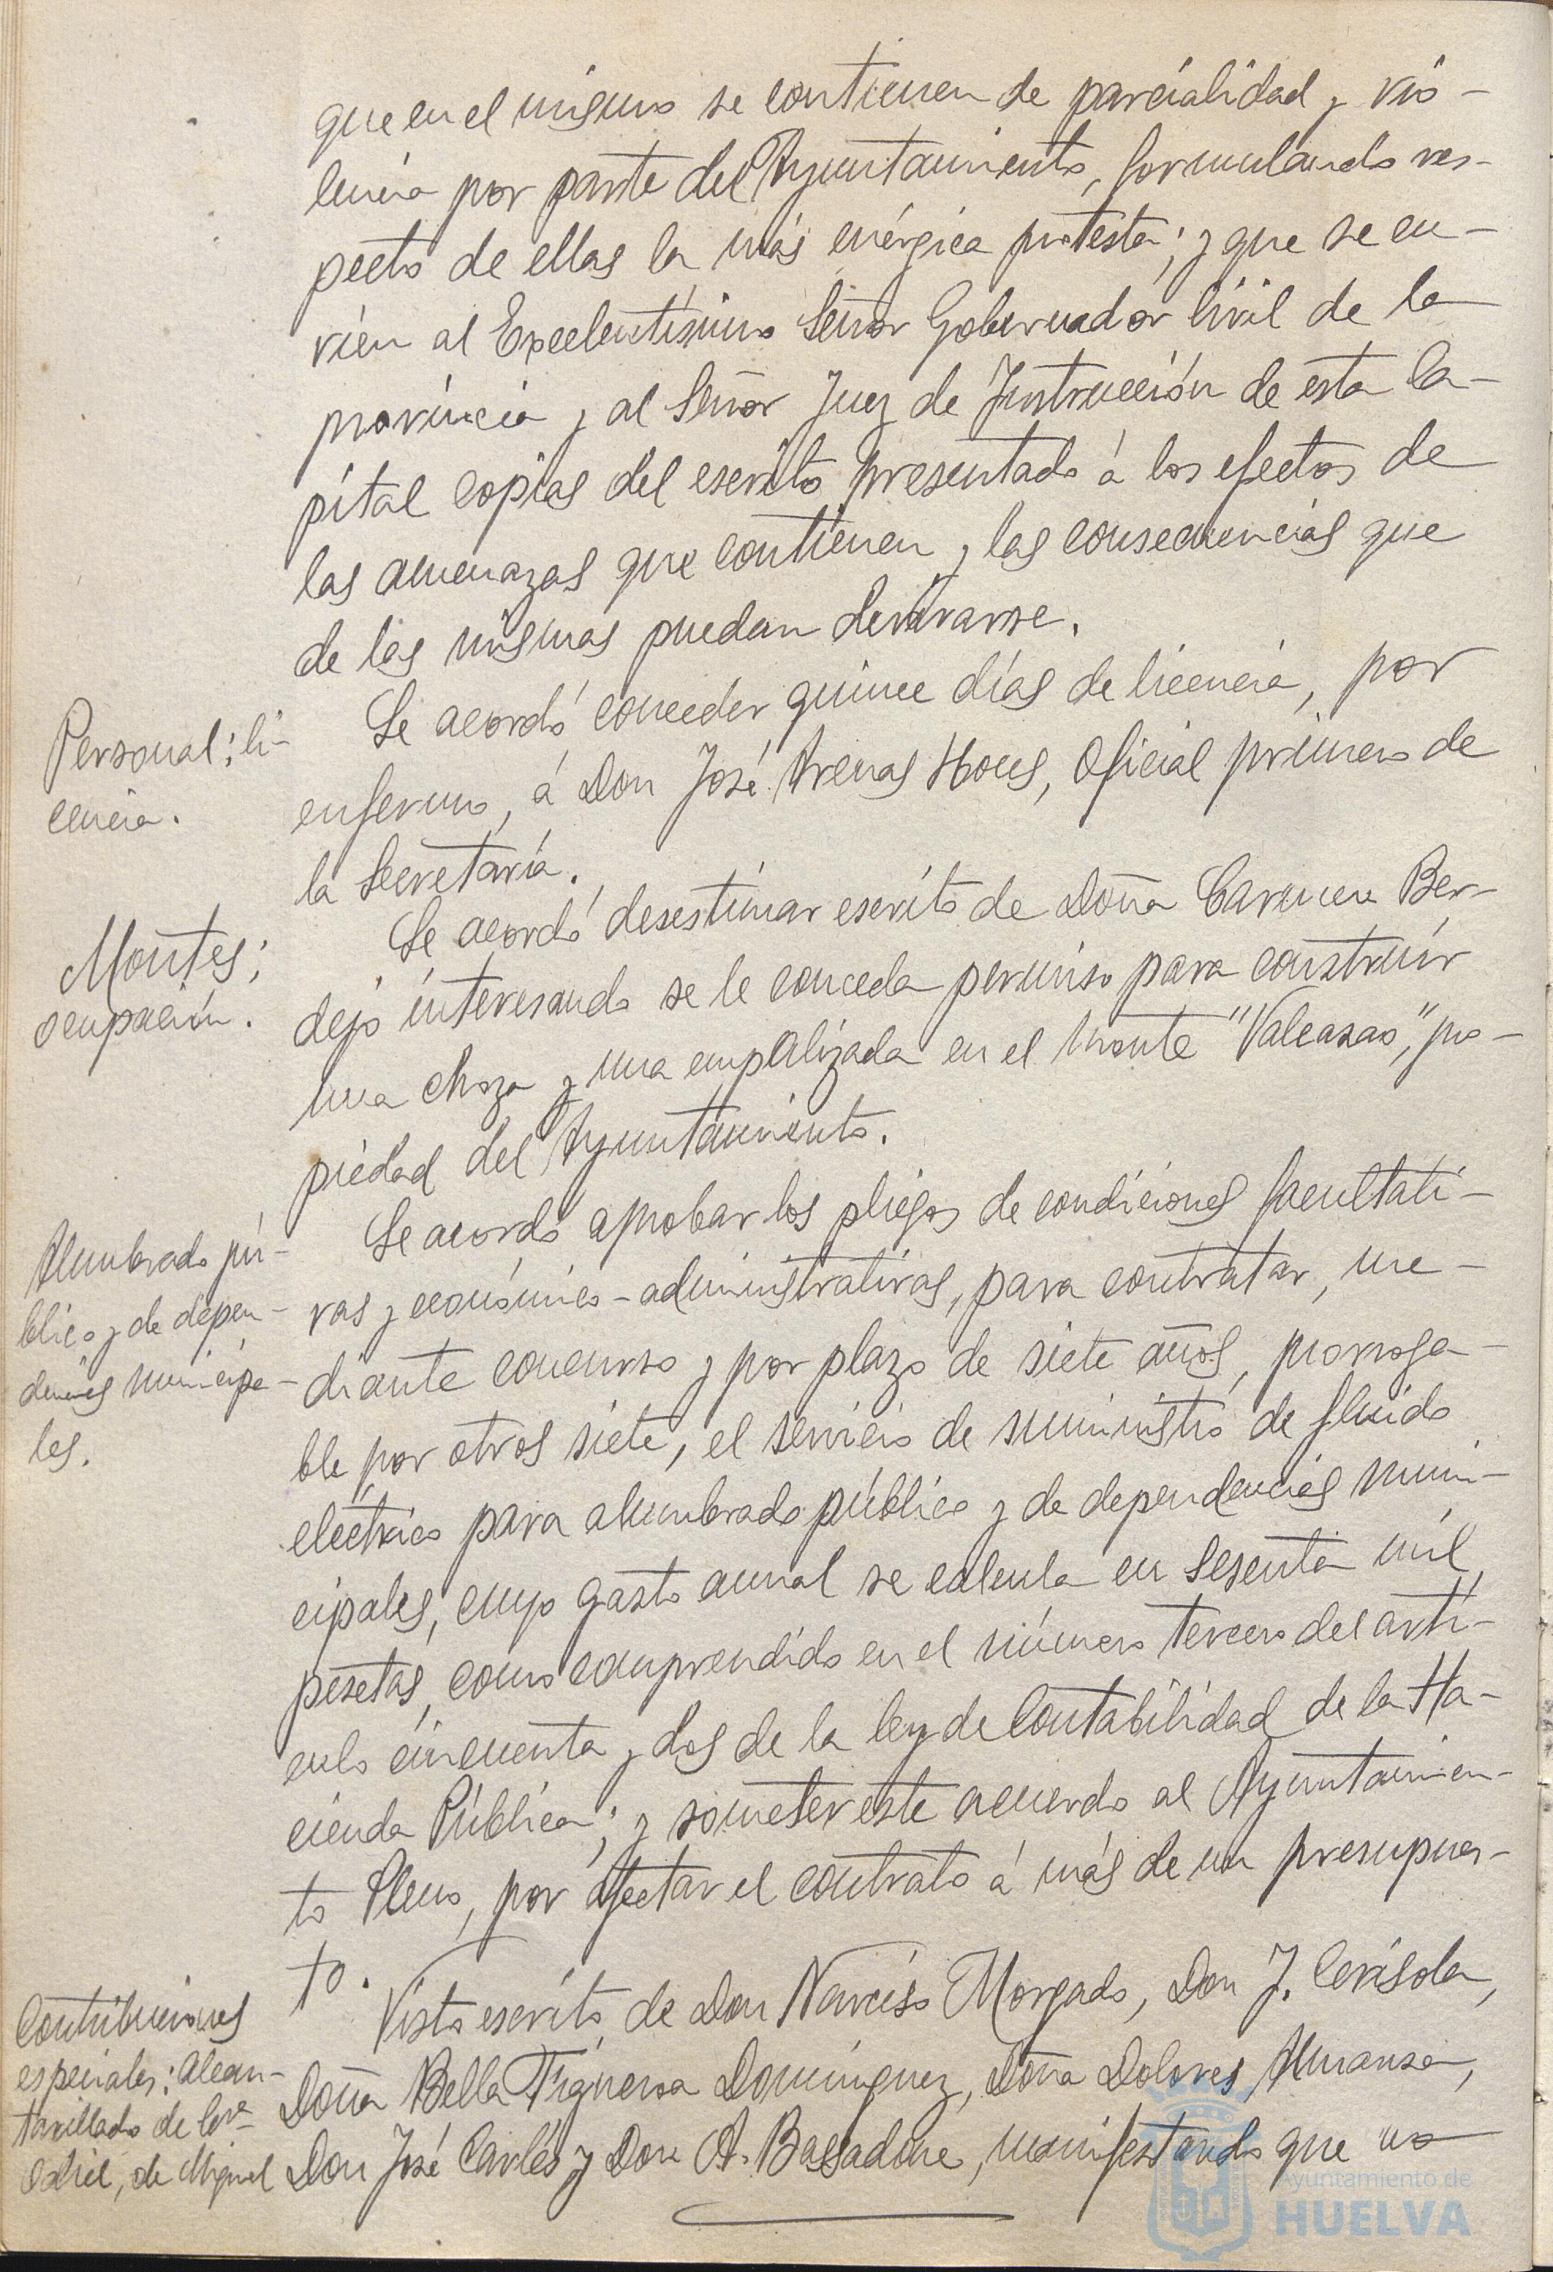 que en el mismo se contienen de parcialidad y vio-
lencia por parte del Ayuntamiento, formulando res-
pecto de ellas la más enérgica protesta; y que se en-
vien al Excelentísimo Señor Gobernador Civil de la
provincia y al Señor Juez de Instrucción de esta Ca-
pital copias del escrito presentado á los efectos de
las amenazas que contienen y las consecuencias que
de las mismas puedan derivarse.
Personal; li-
cencia.
Se acordó conceder quince días de licencia, por
enfermo, á Don José Arenas Hoces, Oficial primero de
la Secretaría.
Montes;
ocupación.
Se acordó desestimar escrito de Doña Carmen Ber-
dejo interesando se le conceda permiso para construir
una choza y una empalizada en el monte "Valcasao", pro-
piedad del Ayuntamiento.
Alumbrado pú-
blico y de depen-
dencias municipa-
les.
Se acordó aprobar los pliegos de condiciones facultati-
vas y económico-administrativas, para contratar, me-
diante concurso y por plazo de siete años, prorroga-
ble por otros siete, el servicio de suministro de fluido
eléctrico para alumbrado público y de dependencias muni-
cipales, cuyo gasto anual se calcula en sesenta mil
pesetas, como comprendido en el número tercero del artí-
culo cincuenta y dos de la ley de Contabilidad de la Ha-
cienda Pública; y someter este acuerdo al Ayuntamien-
to Pleno, por afectar el contrato á más de un presupues-
to.
Contribuciones
especiales: Alcan-
tarillado de
de Miguel
Visto escrito de Don Narciso Morgado, Don J. Cerisola,
Doña Bella Figueroa Domínguez, Doña Dolores Almansa,
Don José Carlés y Don A. Bassadone, manifestando que no
Ayuntamiento de
HUELVA